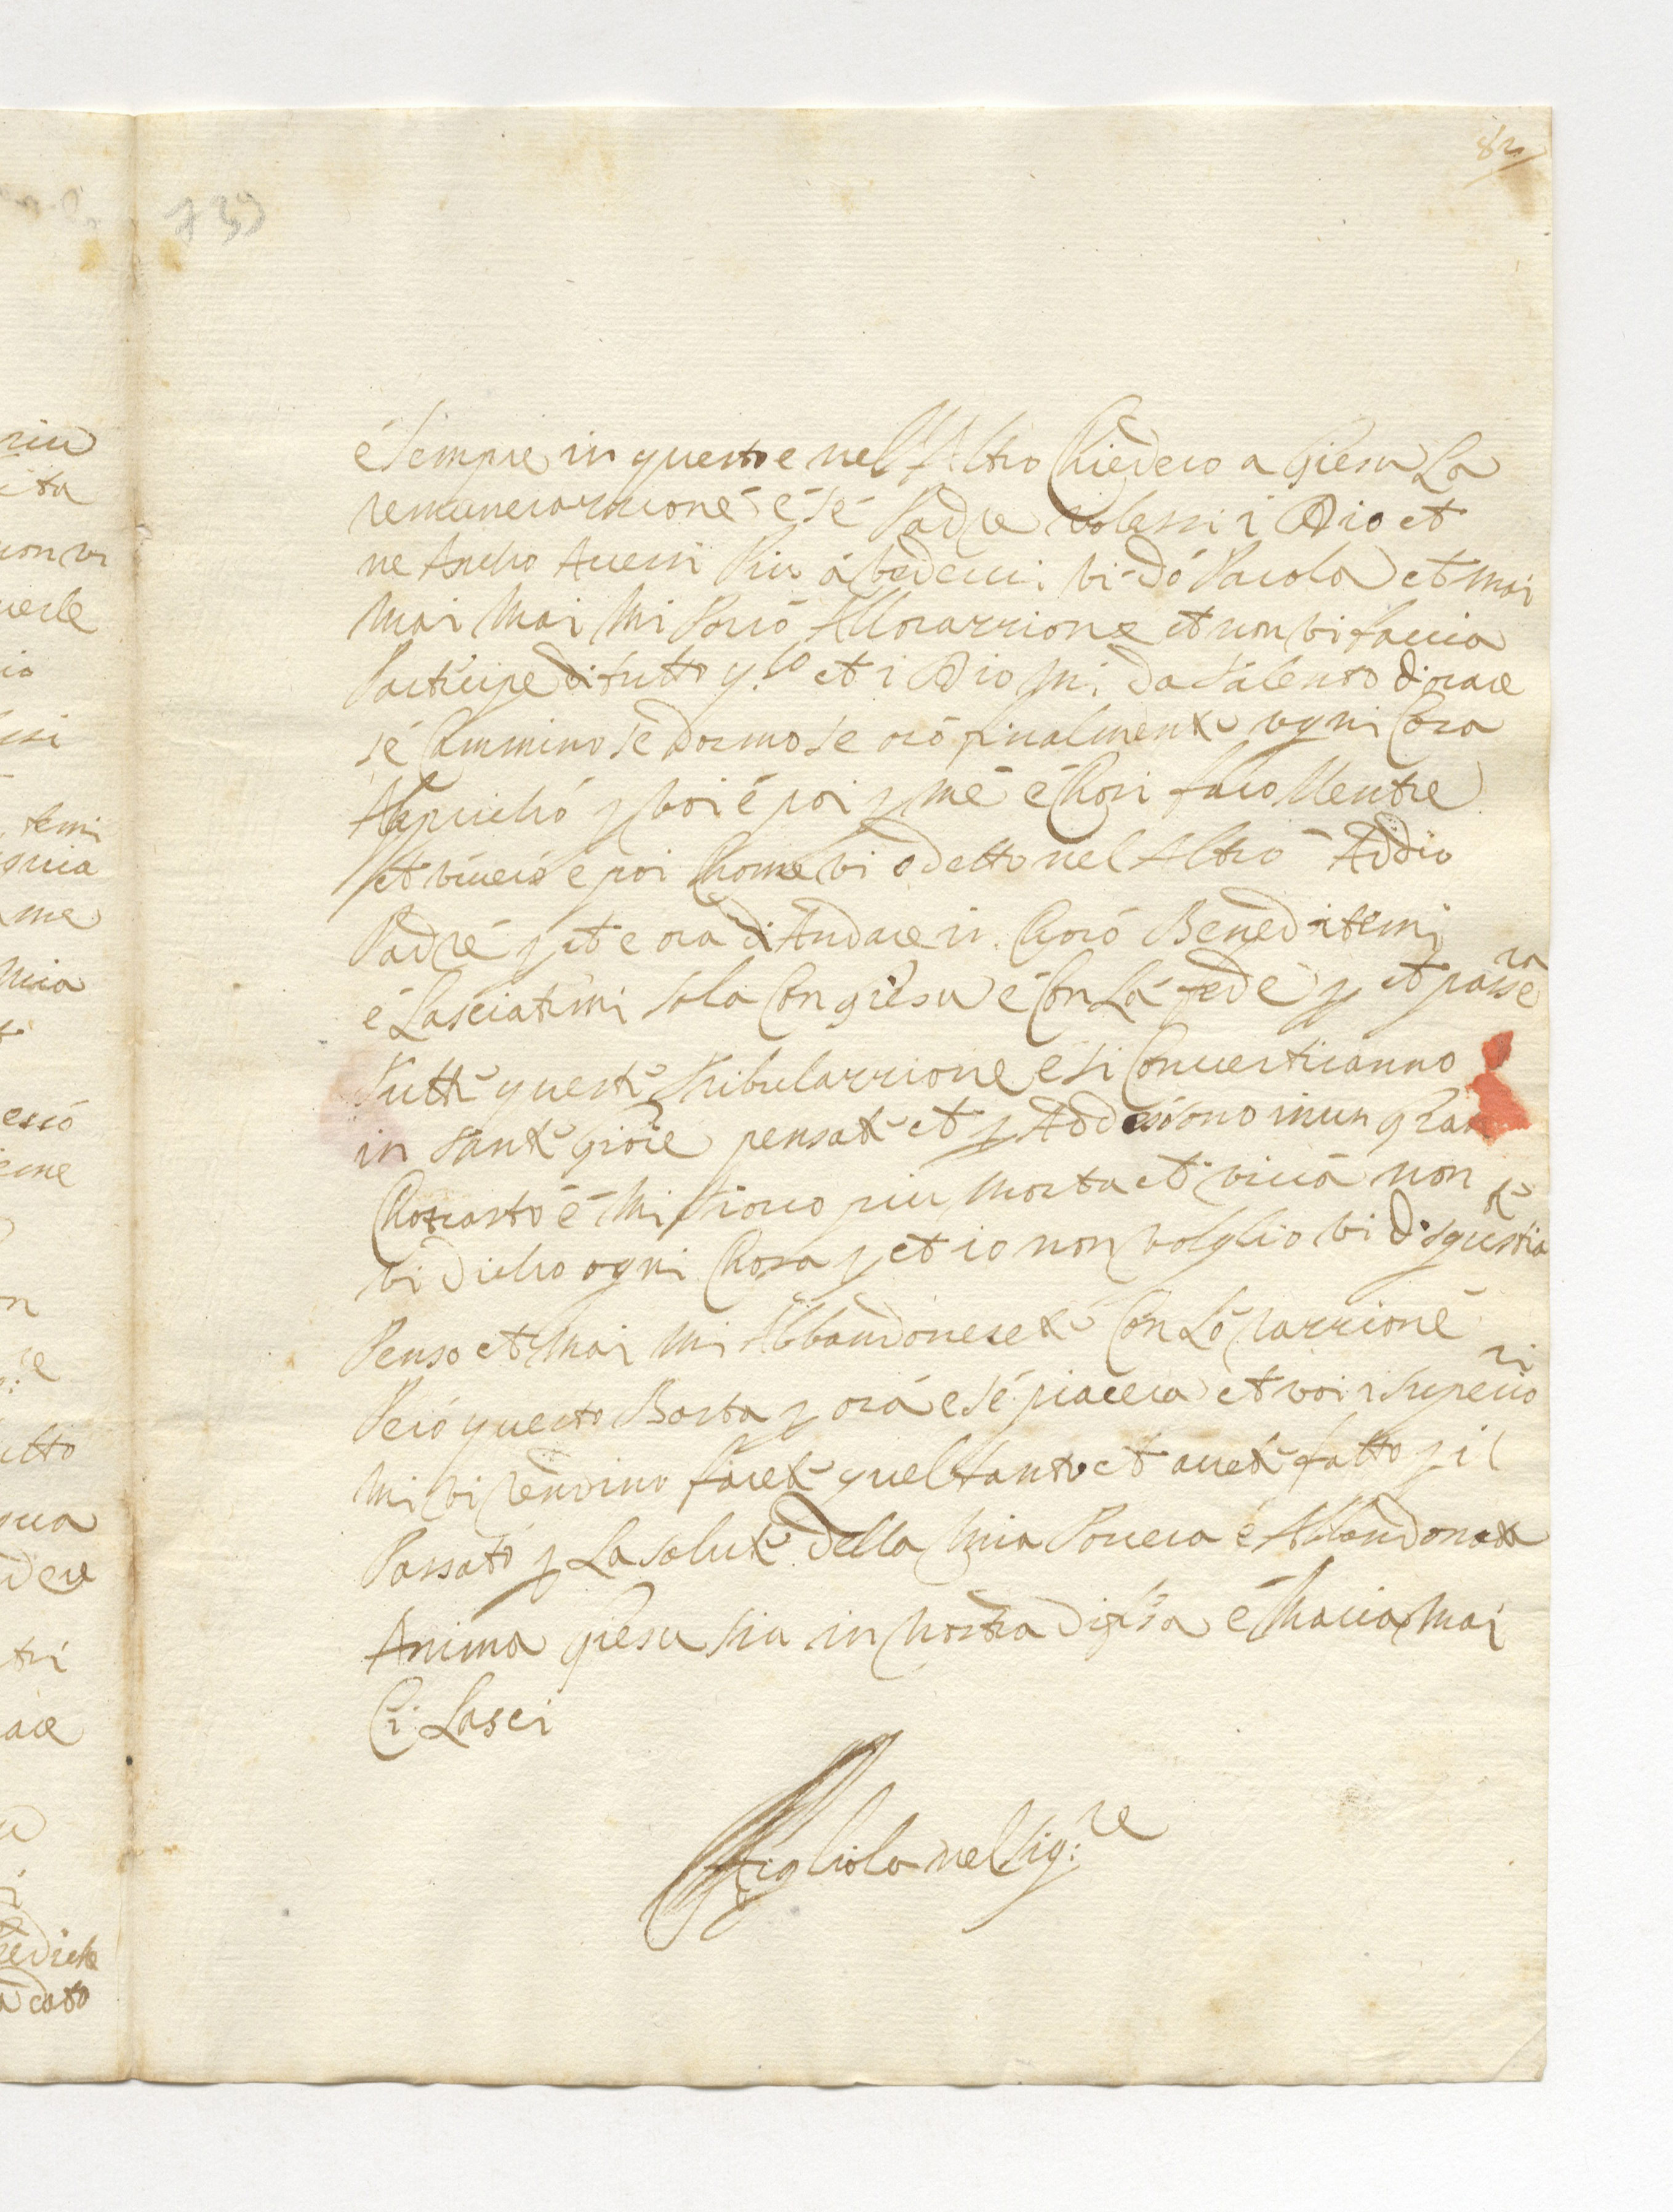 82
739
é sempre in questo e nell'Altro Chiedero a Giesu La
remunerarzione é sé Padre volessi i Dio et
ne Ancho Avessi Piu á vedervi vi dó Parola et mai
Mai Mai Mi Porró All'orarzione et non vi faccia
Participe di tutto q.to et i Dio Mi da talento d'orare
sé Cammino se dormo se oró finalmente ogni Cosa
Appricho p voi é poi p mé é Chosi faro Mentre
et viveró é poi Chome vi o detto nel Altro Addio
Padré p et e ora di Andare in Choró Beneditemi
é Lasciatemi sola Con giesu é Con Lá fede p et passera
Tutte queste Tribularzione e si Convertiranno
in sante gioie pensate et p Addesso sono in un gran
Chontrasto é Mi Trovo piu Morta et vivá non
vi dicho ogni Chosa p et io non volglio vi disgustiate
Penso et Mai Mi Abbandonerete Con Ló rarzioné
Peró questo Basta p orá e sé piacera et voi i superiori
Mi vi rendino farete quel tanto et avete fatto p il
Passato p La salute della Mia Povera é Abbandonata
Anima giesu sia in Nostra difesa é Maria Mai
Ci Lasci
Figliola nel Sig:re